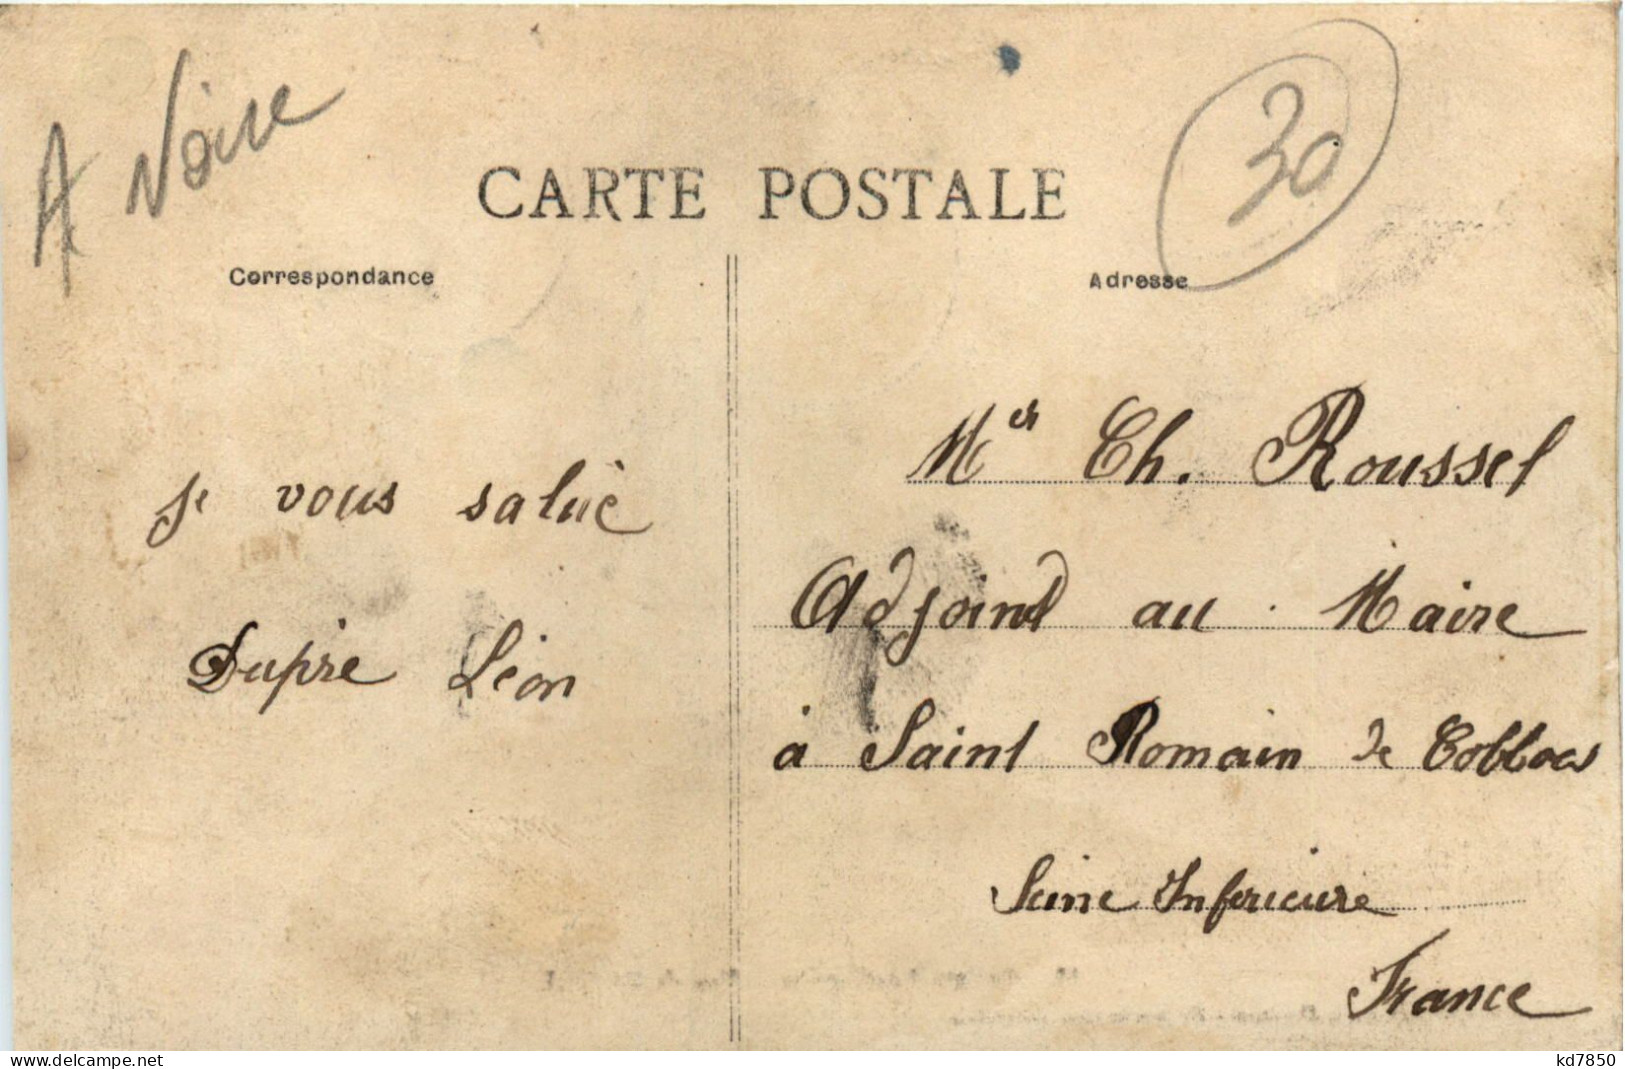 A Noire
30
CARTE POSTALE
Correspondance
Adresse
Je vous saluè
Dupre Léon
Mer Ch. Roussel
Adjoint au Maire
à Saint Romain de Colbocs
Seine Inferieure
France
www.delcampe.net
kd7850